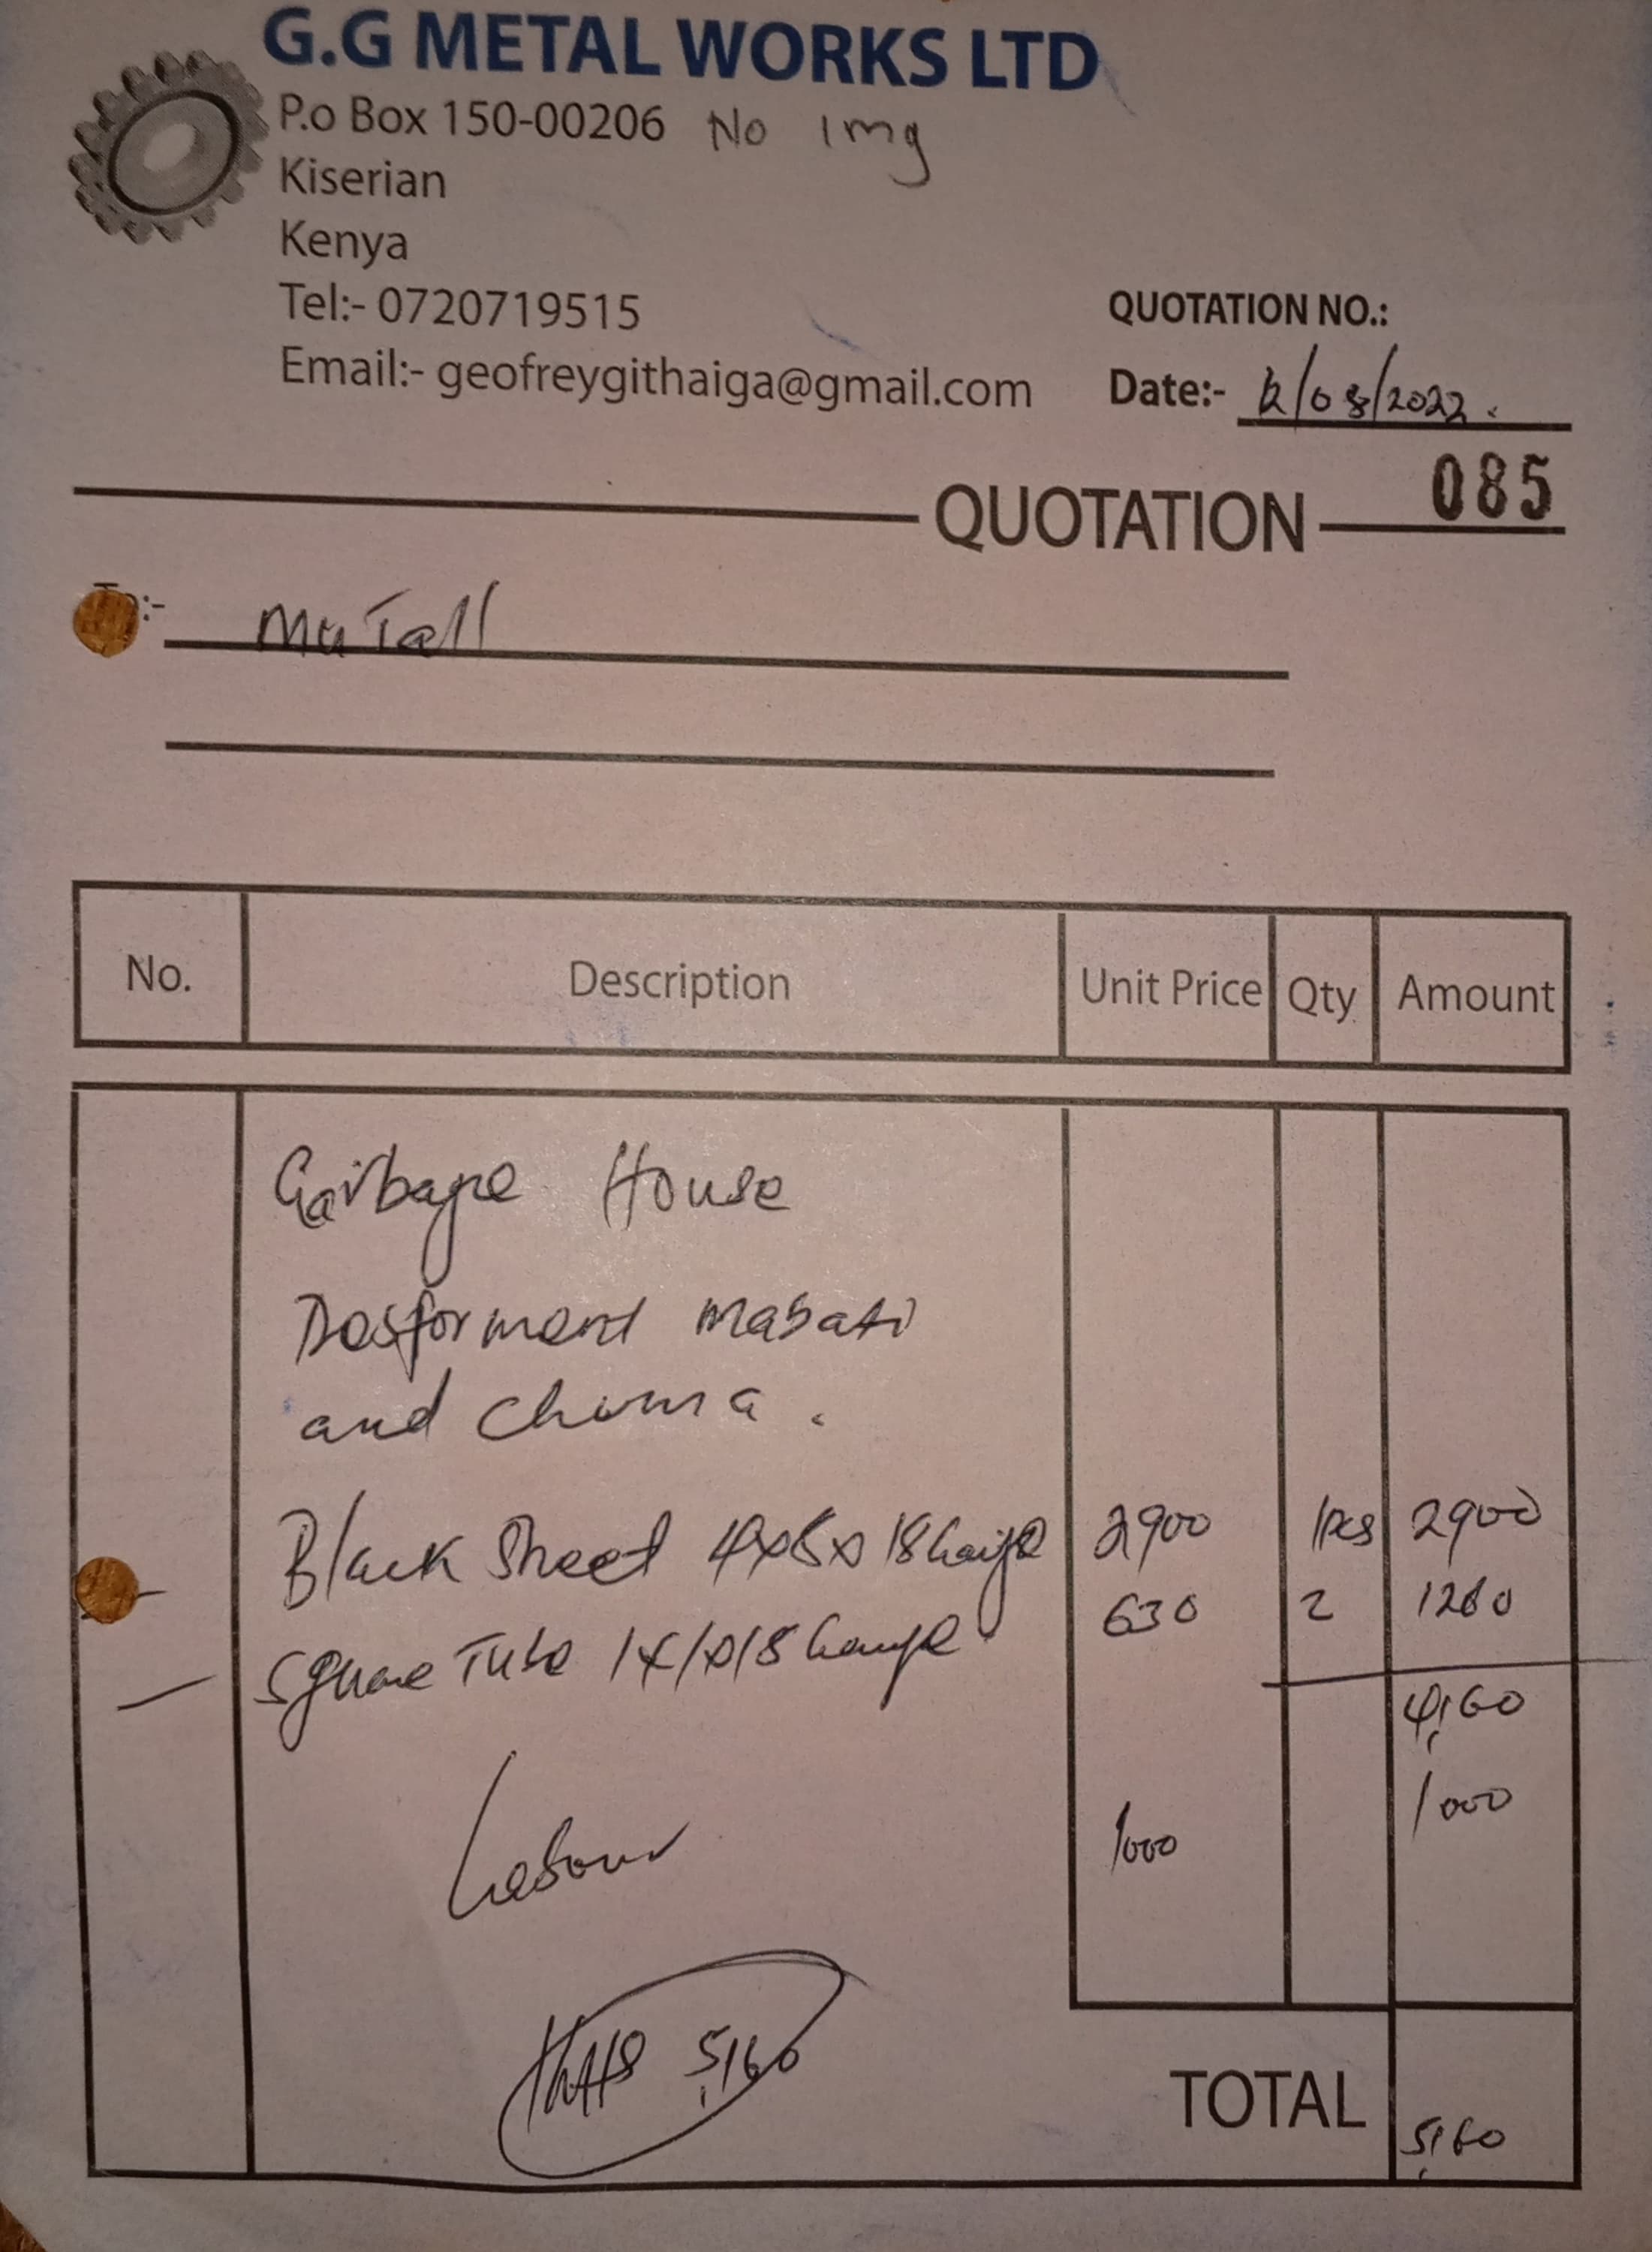 G.G METAL WORKS LTD
P.o Box 150-00206 No Img
Kiserian
Kenya
Tel:- 0720719515
Email:- geofreygithaiga@gmail.com
QUOTATION NO.:
Date:- /08/2022.
QUOTATION 085
To:- MuTall
No. Description Unit Price Qty Amount
Garbage House
mabati
and Chuma.
Black Sheet 4x8x18 Gauge 2900 1pcs 2900
Square Tube 1x1x18 Gauge 630 2 1260
4,160
Labour 1000 1000
5,160
TOTAL 5,160